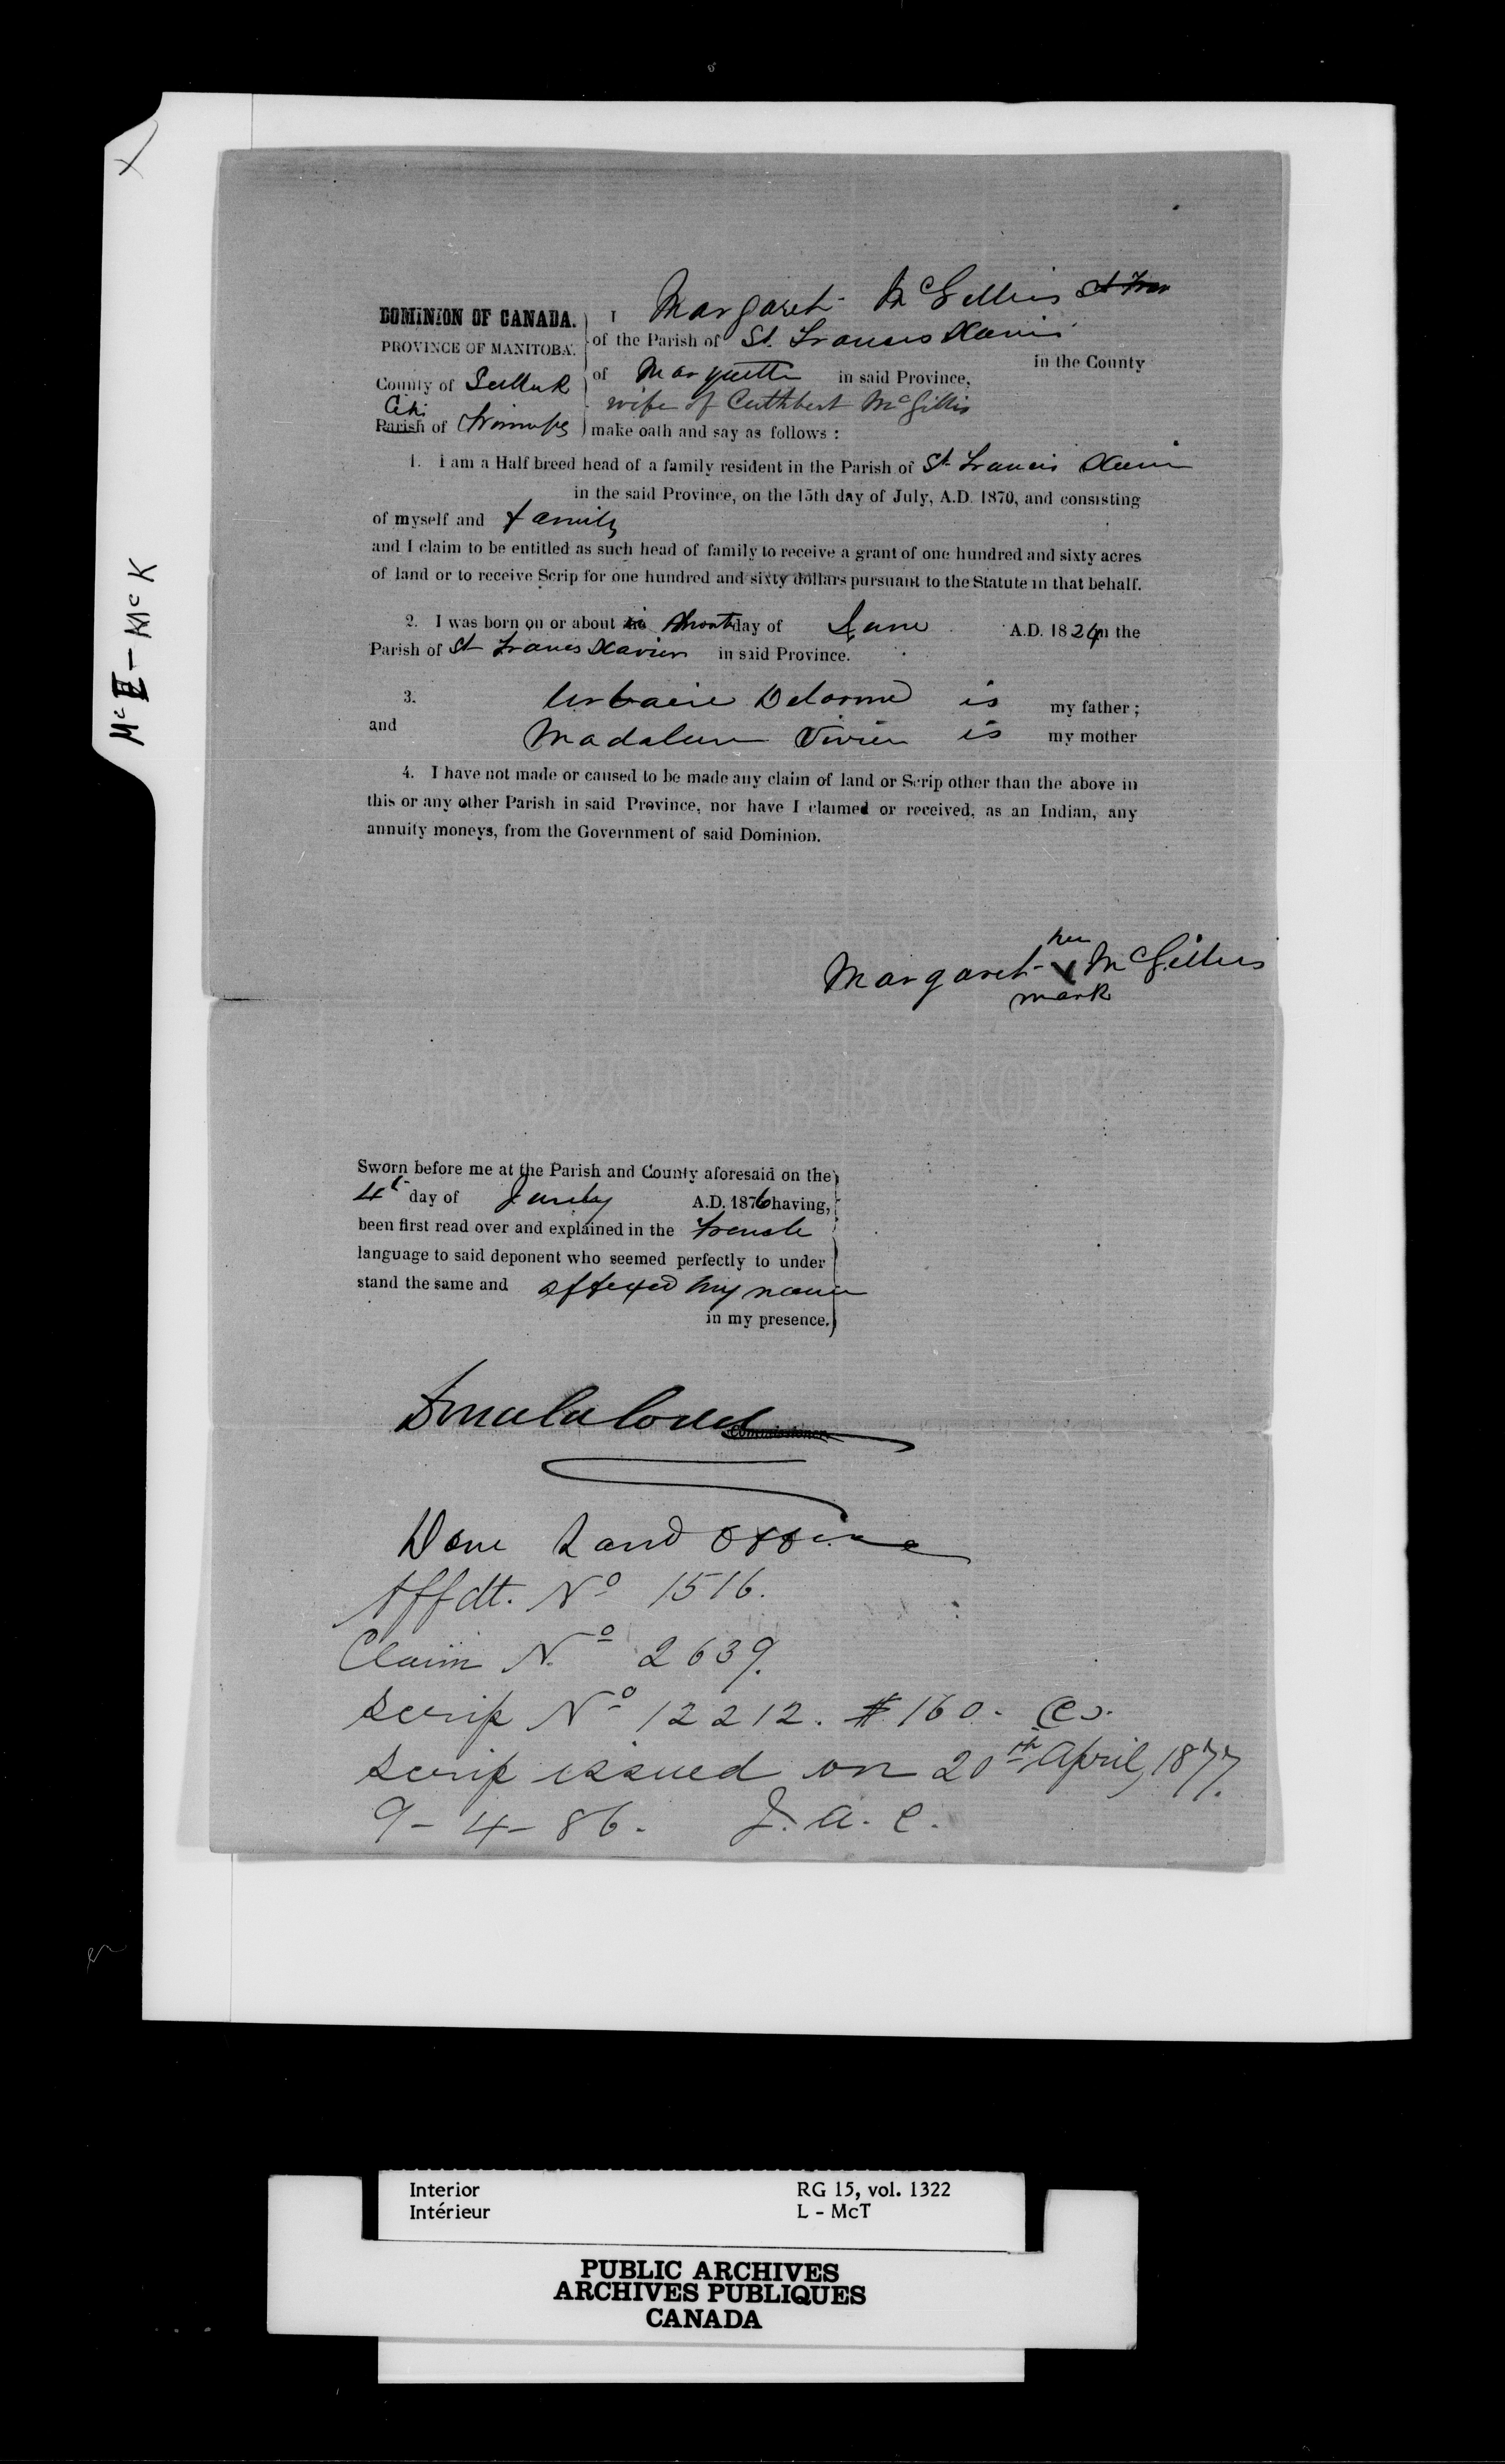 McE - McK
DOMINION OF CANADA.
PROVINCE OF MANITOBA.
County of Selkirk
City
Parish of Winnipeg
I Margaret McGillis St Fran
of the Parish of St. Francois Xavier
in the County
of Marquette in said Province,
wife of Cuthbert McGillis
make oath and say as follows :
1. I am a Half breed head of a family resident in the Parish of St Francis Xavier
in the said Province, on the 15th day of July, A.D. 1870, and consisting
of myself and family
and I claim to be entitled as such head of family to receive a grant of one hundred and sixty acres
of land or to receive Scrip for one hundred and sixty dollars pursuant to the Statute in that behalf.
2. I was born on or about month day of June A.D. 1824 in the
Parish of St Frances Xavier in said Province.
3. Urbain Delorme is my father ;
and Madaleine Vivier is my mother
4. I have not made or caused to be made any claim of land or Scrip other than the above in
this or any other Parish in said Province, nor have I claimed or received, as an Indian, any
annuity moneys, from the Government of said Dominion.
her
Margaret X McGillis
mark
ROAD BROOK
Sworn before me at the Parish and County aforesaid on the
4th day of A.D. 1876 having,
been first read over and explained in the French
language to said deponent who seemed perfectly to under
stand the same and affixed my name
in my presence.
Donald Codd
Commissioner.
Dom Land Office
Affdt. No 1516.
Claim No 2639.
Scrip No 12212. $160.
Scrip issued on 20th April, 1877.
9-4-86. J.A.C.
Interior RG 15, vol. 1322
Intérieur L - McT
PUBLIC ARCHIVES
ARCHIVES PUBLIQUES
CANADA